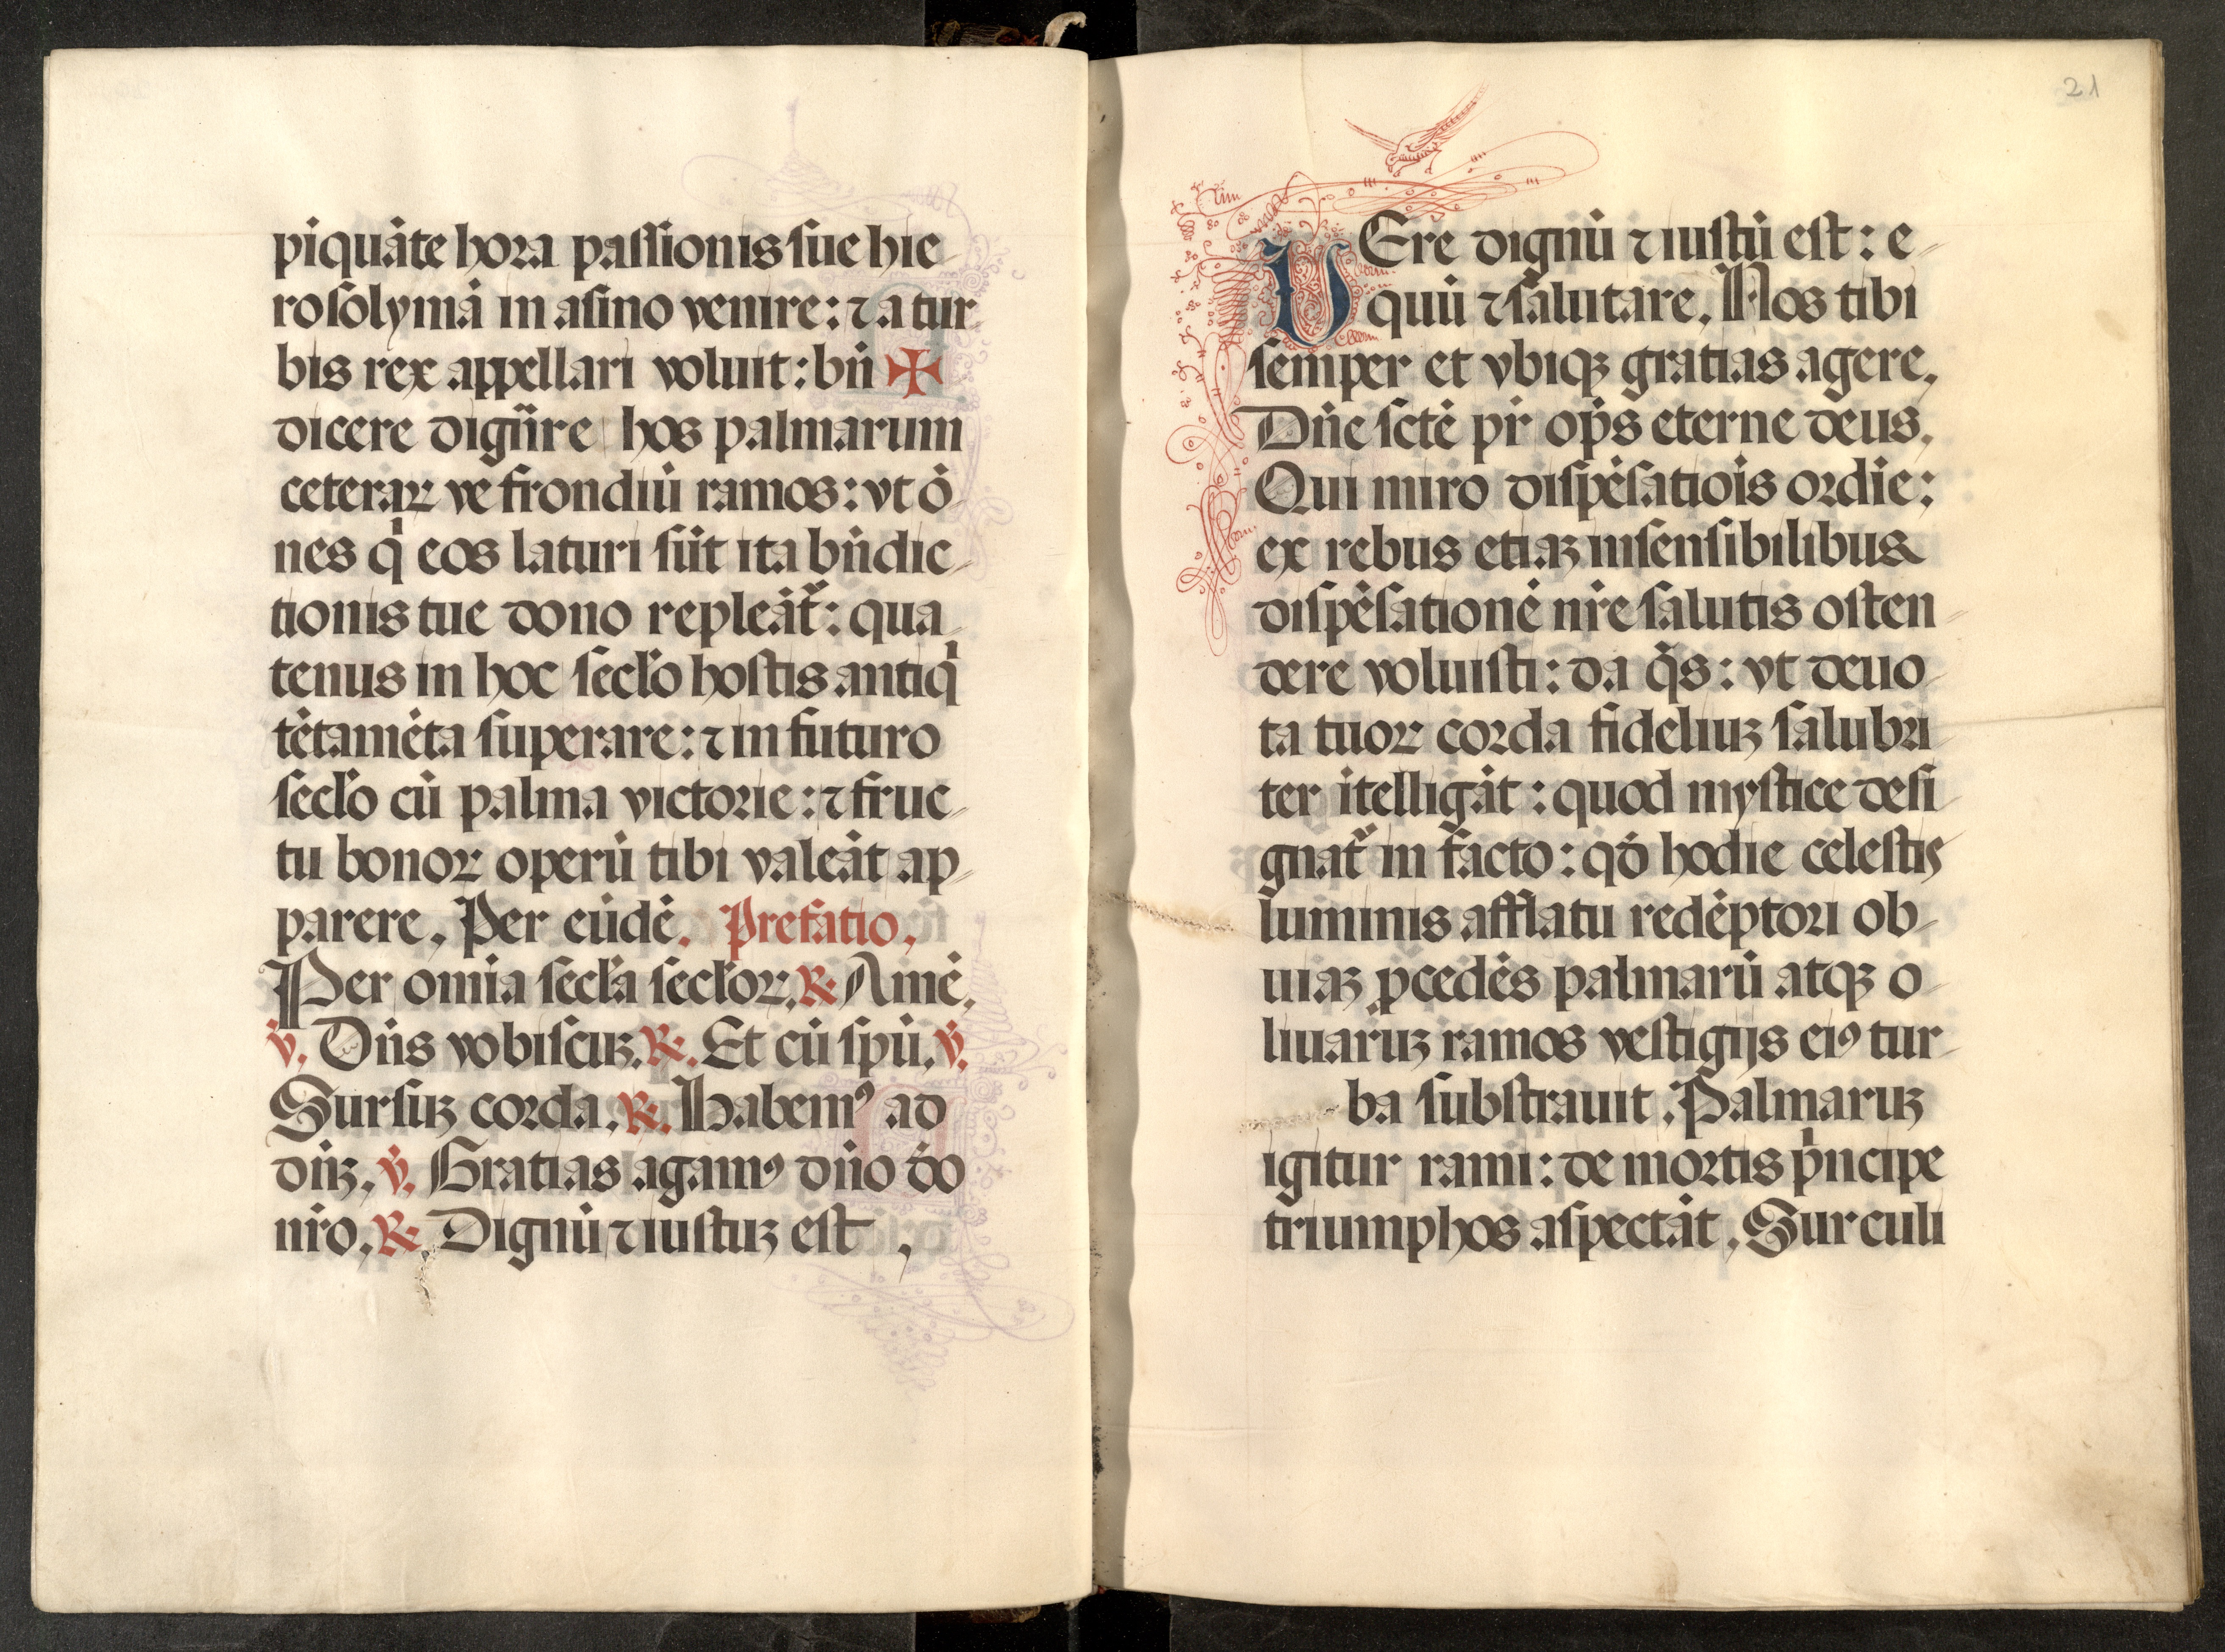 piquāte hora passionis sue hie
rosolymā in asino venire: ⁊ a tur
bis rex appellari voluit: bn̄ ✠
dicere dign̄re hos palmarum
ceteraꝝ ve frondiū ramos: vt ō
nes qͥ eos laturi sūt ita bn̄dic
tionis tue dono repleāt᷑: qua
tenus in hoc sec̄lo hostis antiqͥ
tētamēta superare: ⁊ in futuro
sec̄lo cū palma victorie: ⁊ fruc
tu bonoꝝ operū tibi valeāt ap
parere. Per eūdē. Prefatio.
Per om̄ia sec̄la sec̄loꝝ. ℟. Amē.
℣. Dn̄s vobiscuꝫ. ℟. Et cū sp̄u. ℣.
Sursuꝫ corda. ℟. Habemꝰ ad
dn̄ꝫ. ℣. Gratias agamꝰ dn̄o dō
nr̄o. ℟. Dignū ⁊ iustuꝫ est.
21
VEre dignū ⁊ iustū est: e
quū ⁊ salutare. Nos tibi
semper et vbiqꝫ gratias agere.
Dn̄e sctē pr̄ op̄s eterne deus.
Qui miro dispēsatiōis ordīe:
ex rebus etiaꝫ insensibilibus
dispēsationē nr̄e salutis osten
dere voluisti: da q̄s: vt deuo
ta tuoꝝ corda fideliuꝫ salubri
ter ītelligāt: quod mystice desi
gnat᷑ in facto: qō hodie celestis
luminis afflatu redēptori ob
uiaꝫ p̄cedēs palmarū atqꝫ o
liuaruꝫ ramos vestigijs eiꝰ tur
ba substrauit. Palmaruꝫ
igitur rami: de mortis pͥncipe
triumphos aspectāt. Surculi